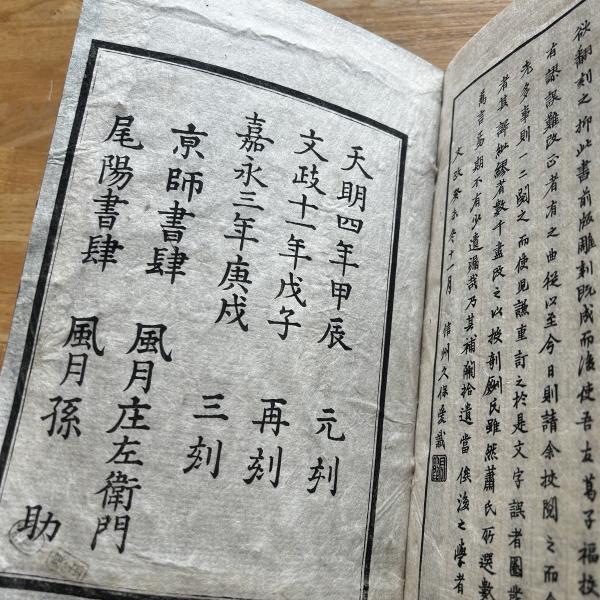 欲翻刻之抑此書前版雕刻既成而後使吾友葛子福校
有謬誤難改正者有之曲從以至今日則請余挍閱之而余
先多事則一二閱之而使見讓重訂之於是文字誤者圈
者其謬紕繆者數千盡改之以授剞劂氏雖然蕭氏所選數
萬言焉期不有少遺漏哉乃其補闕拾遺當俟後之學者
文政癸未冬十一月 信州久保愛識
天明四年甲辰 元刻
文政十一年戊子 再刻
嘉永三年庚戌 三刻
京師書肆 風月庄左衛門
尾陽書肆 風月孫助